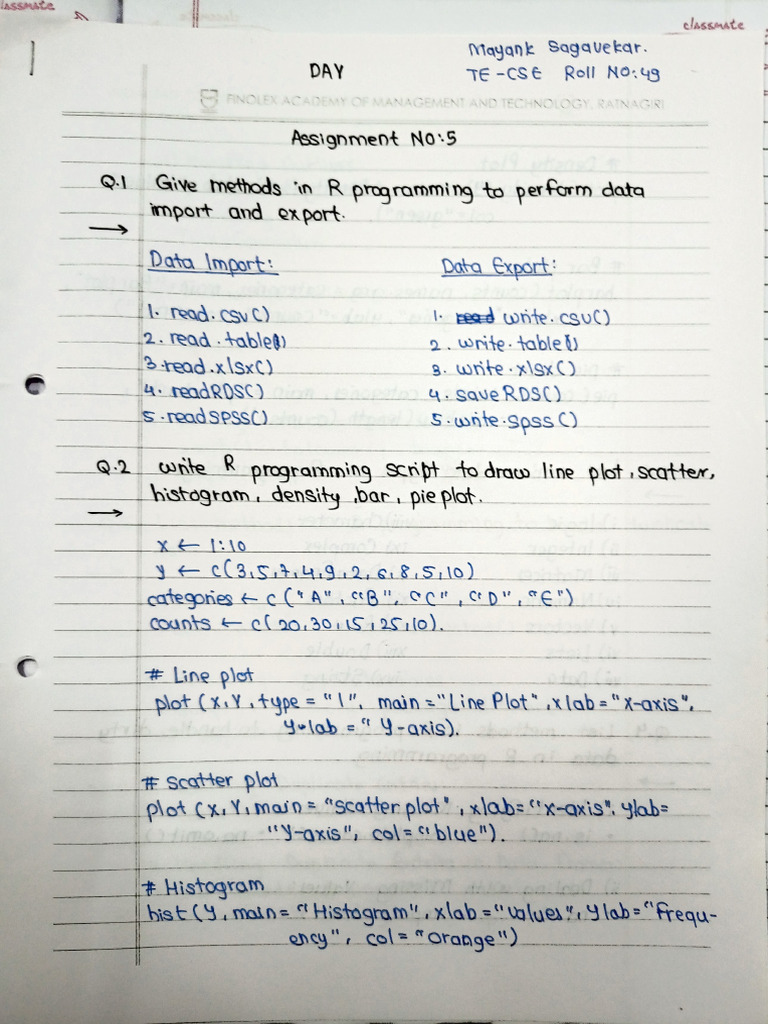 classmate
classmate
Mayank Sagavekar.
DAY
TE-CSE Roll NO:49
FINOLEX ACADEMY OF MANAGEMENT AND TECHNOLOGY, RATNAGIRI
Assignment NO:5
Q.1 Give methods in R programming to perform data
import and export.
→
Data Import: Data Export:
1. read.csv() 1. read write.csv()
2. read.table() 2. write.table()
3. read.xlsx() 3. write.xlsx()
4. readRDS() 4. saveRDS()
5. readSPSS() 5. write.spss()
Q.2 write R programming script to draw line plot, scatter,
histogram, density, bar, pie plot.
→
x ← 1:10
y ← c(3,5,7,4,9,2,6,8,5,10)
categories ← c("A", "B", "C", "D", "E")
counts ← c(20,30,15,25,10).
# Line plot
plot (x, y, type = "l", main = "Line Plot", xlab = "x-axis",
ylab = "Y-axis).
# scatter plot
plot (x, y, main = "scatter plot", xlab= "x-axis". ylab=
"Y-axis", col = "blue").
# Histogram
hist (y, main= "Histogram", xlab = "values", ylab= "Frequ-
ency", col = "orange")